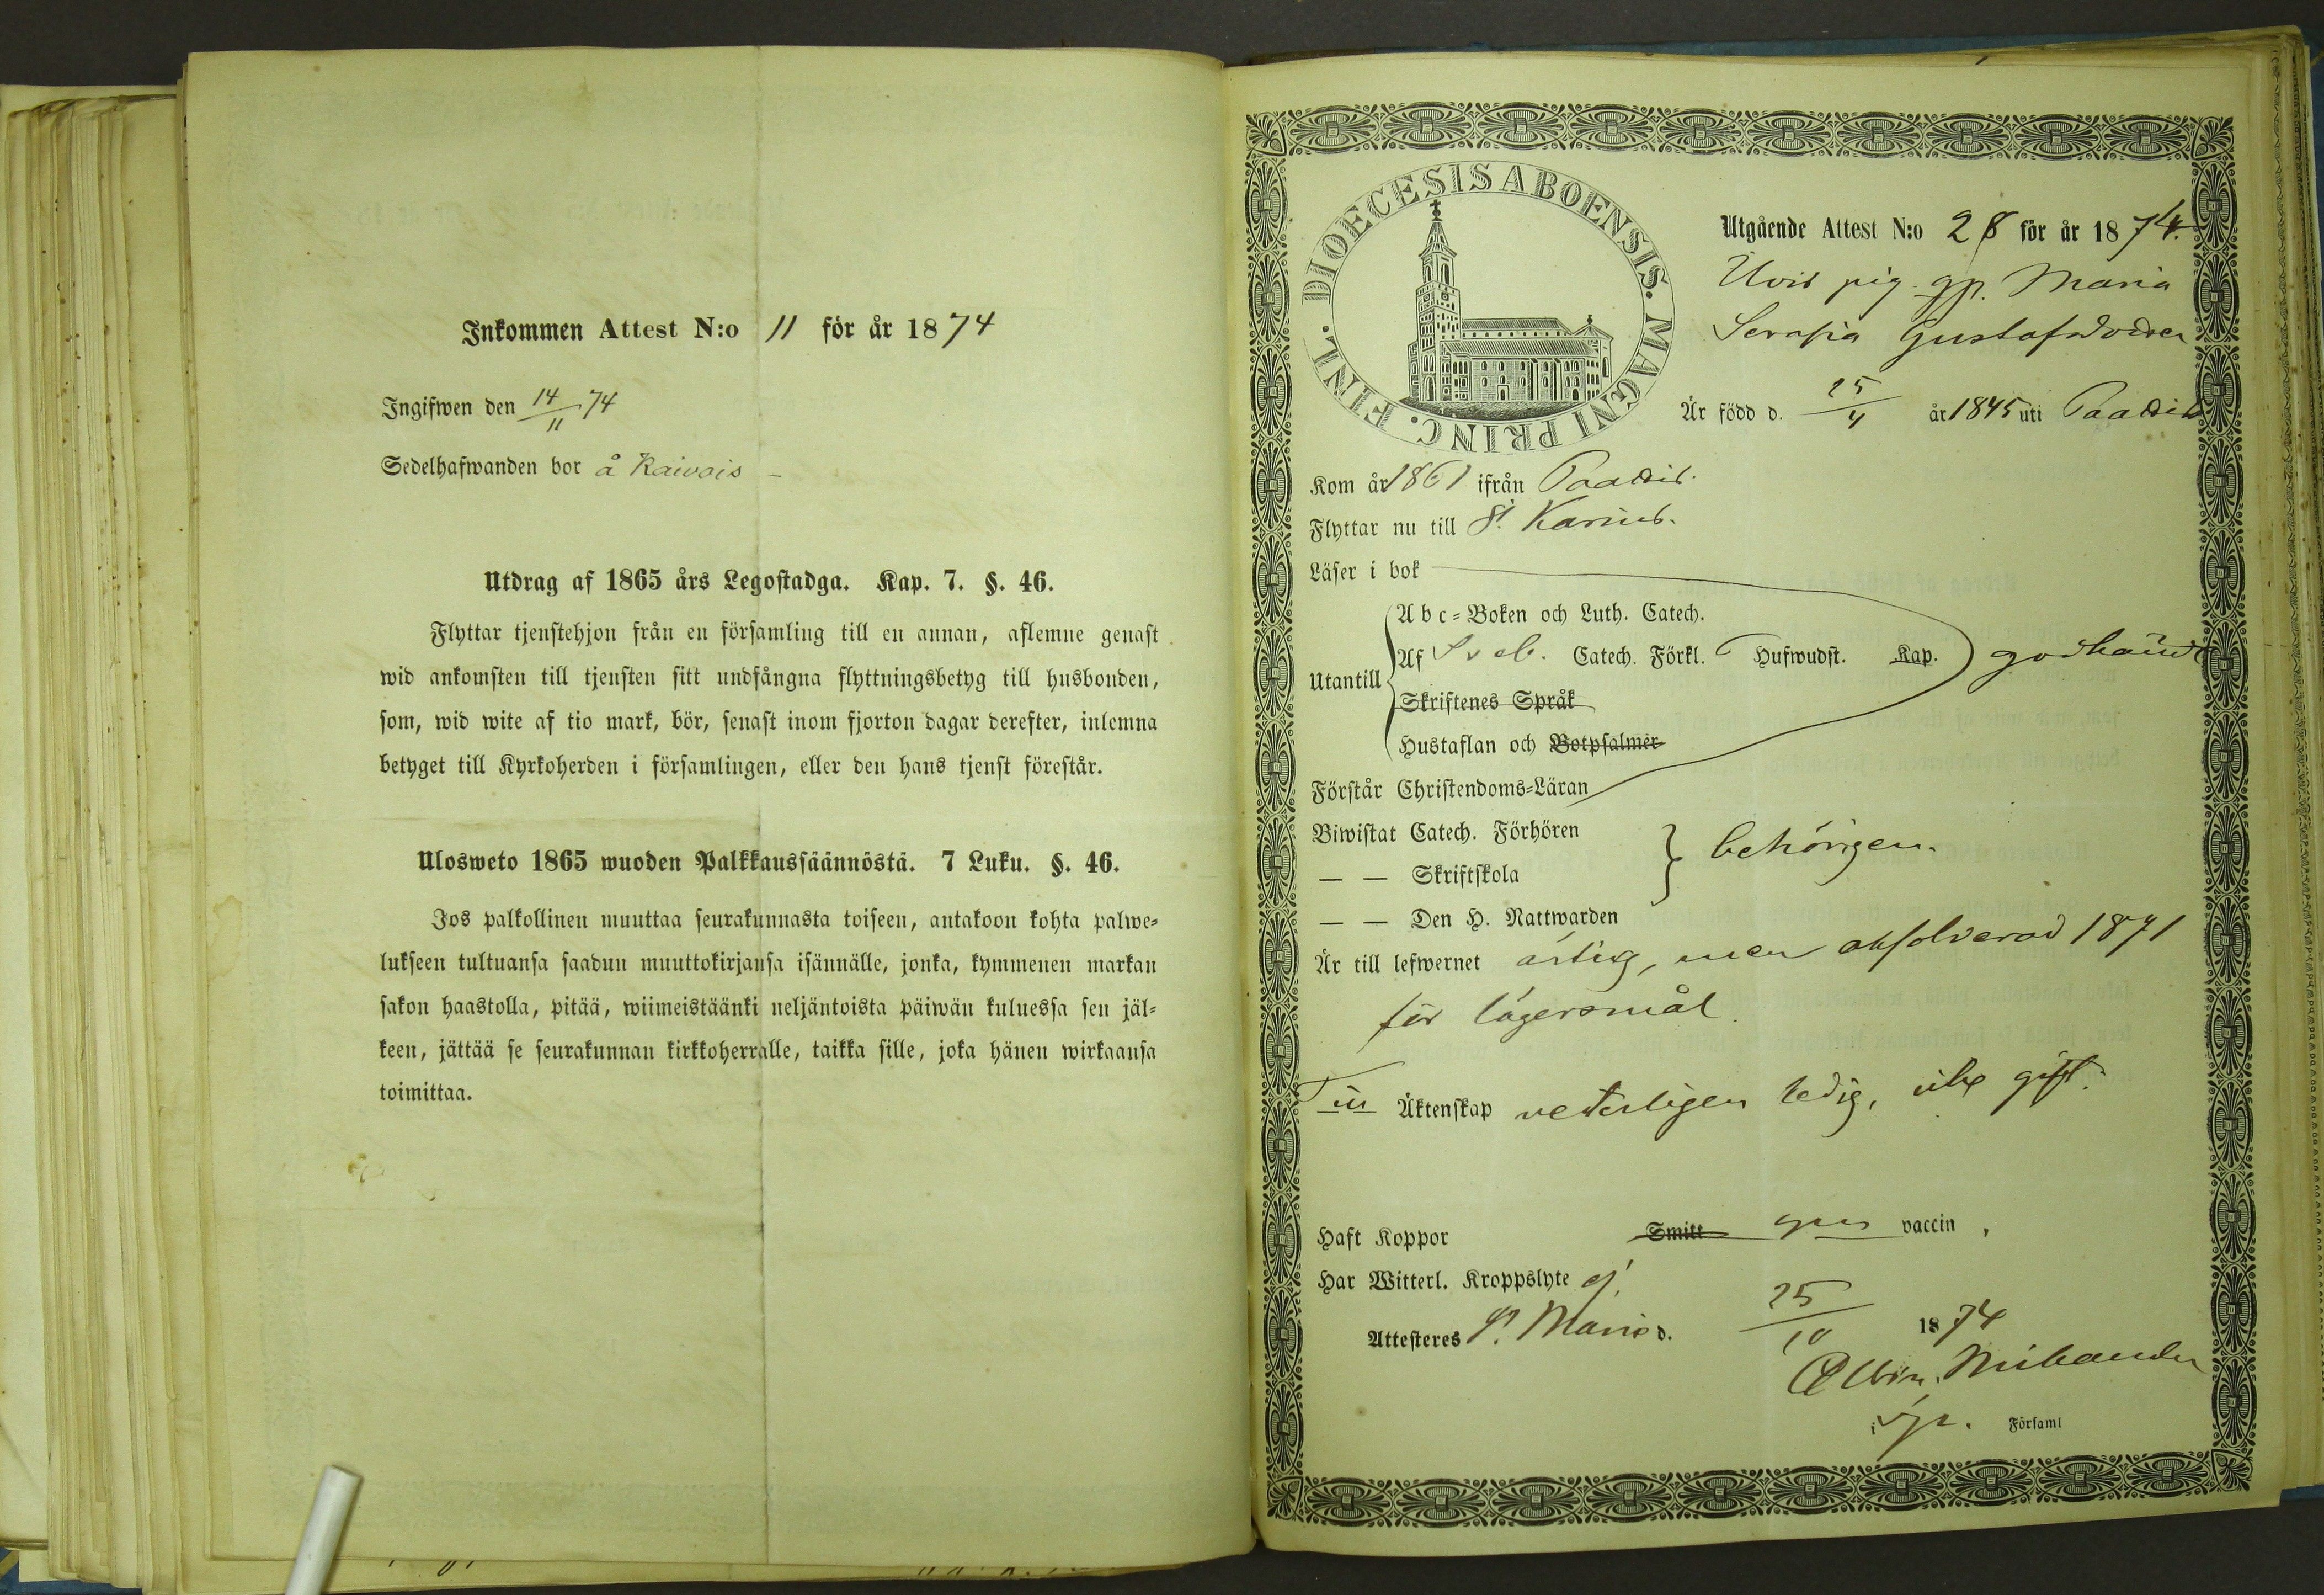 Inkommen Attest N:o 11 för år 1874
Ingifwen den 14/11 74
Sedelhafwanden bor å Kaivois
Utdrag af 1865 års Legostadga. Kap. 7. §. 46.
Flyttar tjenstehjon från en församling till en annan, aflemne genast
wid ankomsten till tjensten sitt undfångna flyttningsbetyg till husbonden,
som, wid wite af tio mark, bör, senast inom fjorton dagar derefter, inlemna
betyget till Kyrkoherden i församlingen, eller den hans tjenst förestår.
Ulosweto 1865 wuoden Palkkaussäännöstä. 7 Luku. §. 46.
Jos palkollinen muuttaa seurakunnasta toiseen, antakoon kohta palwe-
lukseen tultuansa saadun muuttokirjansa isännälle, jonka, kymmenen markan
sakon haastolla, pitää, wiimeistäänki neljäntoista päiwän kuluessa sen jäl-
keen, jättää se seurakunnan kirkkoherralle, taikka sille, joka hänen wirkaansa
toimittaa.
DIOECESIS ABOENSIS. MAGNI PRINC. FINL.
Utgående Attest N:o 28 för år 1874.
pig. Maria
Serafia Gustafsdoter
Är född d. 25/4 år 1845 uti Paadis
Kom år 1861 ifrån Paadis.
Flyttar nu till St. Karins.
Läser i bok
Utantill
Abc-Boken och Luth. Catech.
Af Sveb. Catech. Förkl. Hufwudst. Kap. godkänd
Skriftenes Språk
Hustaflan och Botpsalmer
Förstår Christendoms-Läran
Biwistat Catech. Förhören
— — Skriftskola
behörigen.
— — Den H. Nattwarden
Är till lefwernet ärlig, men absolverad 1871
för lägersmål.
Till Äktenskap veterligen ledig, icke gift.
Haft Koppor Smitt vaccin,
Har Witterl. Kroppslyte ej.
Attesteres St. Marie d. 25/10 1874
Albin. Mikander
i Församl